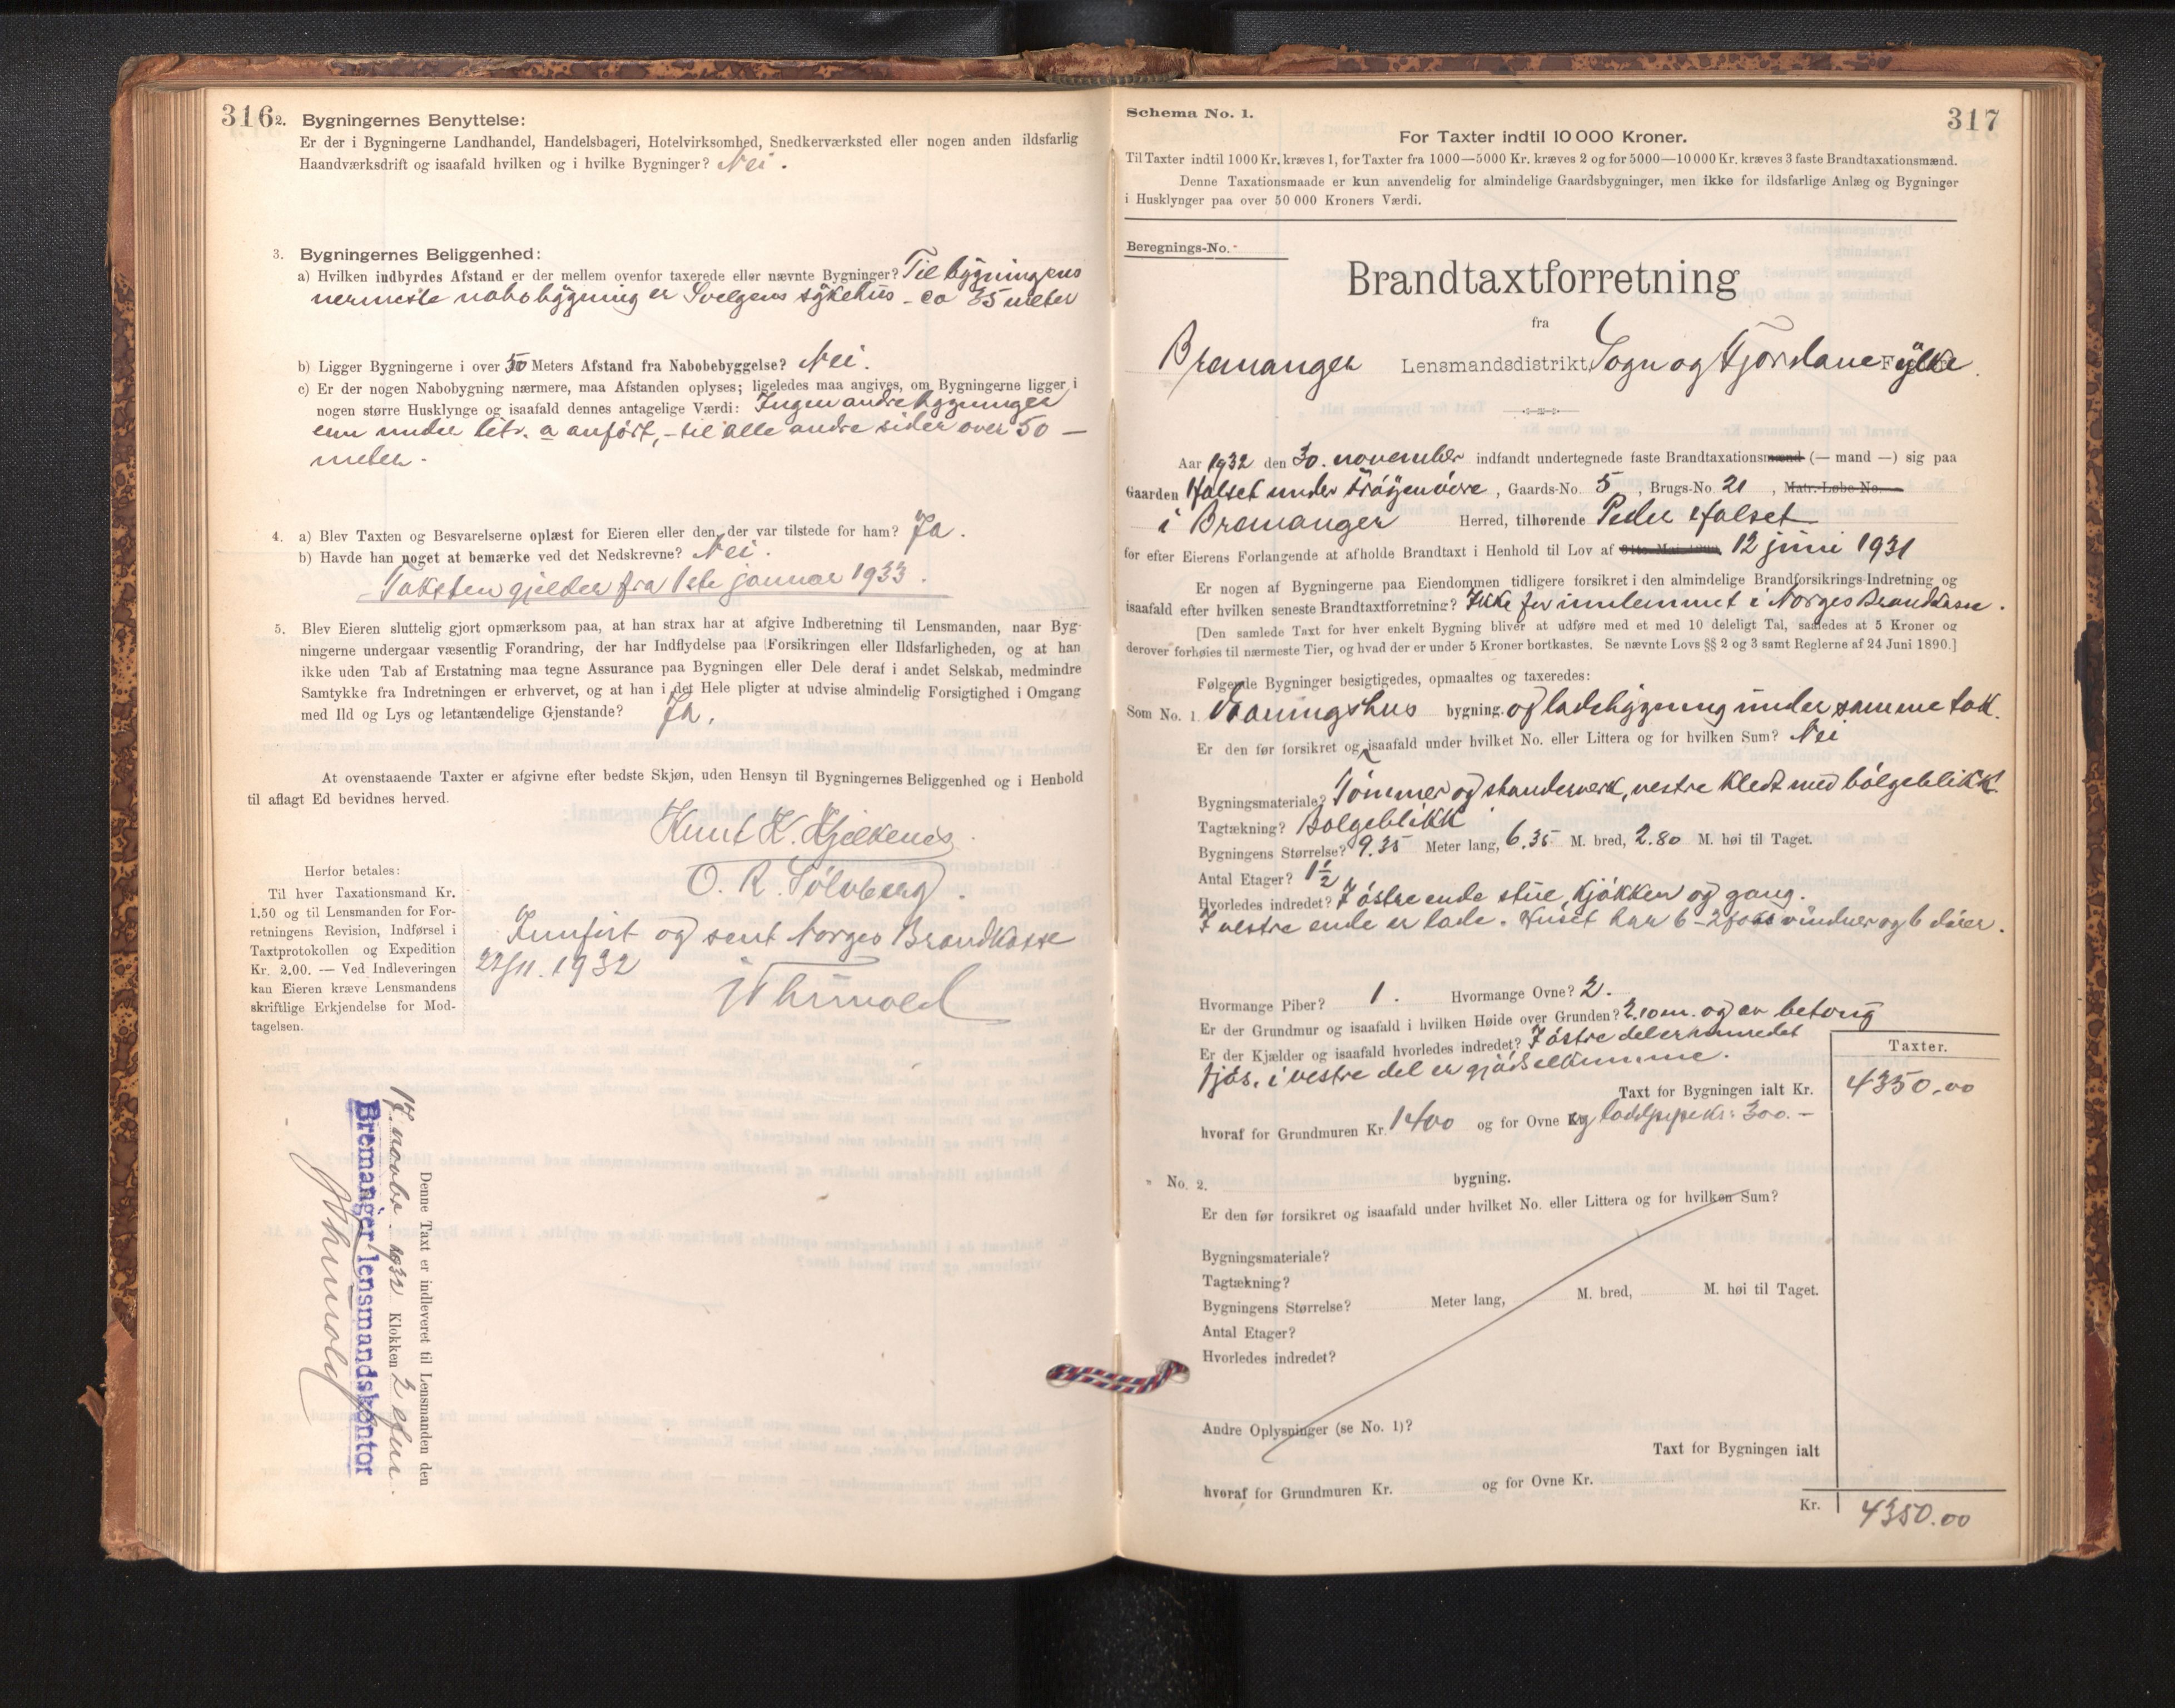 316
2. Bygningernes Benyttelse:
Er der i Bygningerne Landhandel, Handelsbageri, Hotelvirksomhed, Snedkerværksted eller nogen anden ildsfarlig
Haandværksdrift og isaafald hvilken og i hvilke Bygninger? Nei.
3. Bygningernes Beliggenhed:
a) Hvilken indbyrdes Afstand er der mellem ovenfor taxerede eller nævnte Bygninger? Til bygningens
nermeste nabobygning er Svelgens sykehus - ca 35 meter
b) Ligger Bygningerne i over 50 Meters Afstand fra Nabobebyggelse? Nei.
c) Er der nogen Nabobygning nærmere, maa Afstanden oplyses; ligeledes maa angives, om Bygningerne ligger i
nogen større Husklynge og isaafald dennes antagelige Værdi: Ingen andre bygninger
enn under litr. a anført, - til alle andre sider over 50 -
meter -
4. a) Blev Taxten og Besvarelserne oplæst for Eieren eller den, der var tilstede for ham? Ja.
b) Havde han noget at bemærke ved det Nedskrevne? Nei.
Taksten gjelder fra 1ste januar 1933.
5. Blev Eieren sluttelig gjort opmærksom paa, at han strax har at afgive Indberetning til Lensmanden, naar Byg-
ningerne undergaar væsentlig Forandring, der har Indflydelse paa Forsikringen eller Ildsfarligheden, og at han
ikke uden Tab af Erstatning maa tegne Assurance paa Bygningen eller Dele deraf i andet Selskab, medmindre
Samtykke fra Indretningen er erhvervet, og at han i det Hele pligter at udvise almindelig Forsigtighed i Omgang
med Ild og Lys og letantændelige Gjenstande? Ja.
At ovenstaaende Taxter er afgivne efter bedste Skjøn, uden Hensyn til Bygningernes Beliggenhed og i Henhold
til aflagt Ed bevidnes herved.
Knut K. Hjelkenes.
O. R. Sølvberg.
Herfor betales:
Til hver Taxationsmand Kr.
1.50 og til Lensmanden for For-
retningens Revision, Indførsel i
Taxtprotokollen og Expedition
Kr. 2.00. — Ved Indleveringen
kan Eieren kræve Lensmandens
skriftlige Erkjendelse for Mod-
tagelsen.
Innført og sent Norges Brandkasse
22/11. 1932
Denne Taxt er indleveret til Lensmanden den
17. novbr. 1932 Klokken 2 efm.
Bremanger lensmandskontor
317
Schema No. 1.
For Taxter indtil 10 000 Kroner.
Til Taxter indtil 1000 Kr. kræves 1, for Taxter fra 1000—5000 Kr. kræves 2 og for 5000—10 000 Kr. kræves 3 faste Brandtaxationsmænd.
Denne Taxationsmaade er kun anvendelig for almindelige Gaardsbygninger, men ikke for ildsfarlige Anlæg og Bygninger
i Husklynger paa over 50 000 Kroners Værdi.
Beregnings-No.
Brandtaxtforretning
fra
Bremanger Lensmandsdistrikt, Sogn og Fjordane Fylke.
Aar 1932 den 30. november indfandt undertegnede faste Brandtaxationsmænd (— mand —) sig paa
Gaarden Halset under Frøyenøvre, Gaards-No. 5, Brugs-No. 21, Matr.-Løbe-No.
i Bremanger Herred, tilhørende Peder Halset
for efter Eierens Forlangende at afholde Brandtaxt i Henhold til Lov af 12 juni 1931
Er nogen af Bygningerne paa Eiendommen tidligere forsikret i den almindelige Brandforsikrings-Indretning og
isaafald efter hvilken seneste Brandtaxtforretning? Ikke før innlemmet i Norges Brandkasse.
[Den samlede Taxt for hver enkelt Bygning bliver at udføre med et med 10 deleligt Tal, saaledes at 5 Kroner og
derover forhøies til nærmeste Tier, og hvad der er under 5 Kroner bortkastes. Se nævnte Lovs §§ 2 og 3 samt Reglerne af 24 Juni 1890.]
Følgende Bygninger besigtigedes, opmaaltes og taxeredes:
Som No. 1. Vaaningshus bygning. og ladebygning under samme tak.
Er den før forsikret og isaafald under hvilket No. eller Littera og for hvilken Sum? Nei
Bygningsmateriale? Tømmer og standerverk, vestre kledt med bølgeblikk.
Tagtækning? Bølgeblikk
Bygningens Størrelse? 9.35 Meter lang, 6.35 M. bred, 2.80 M. høi til Taget.
Antal Etager? 1½
Hvorledes indredet? I østre ende stue, kjøkken og gang.
I vestre ende er lade. Huset har 6 - 2 fass vinduer og 6 dører.
Hvormange Piber? 1. Hvormange Ovne? 2.
Er der Grundmur og isaafald i hvilken Høide over Grunden? 2.10 m. og av betong
Er der Kjælder og isaafald hvorledes indredet? I østre del er innredet
fjøs, i vestre del er gjødselkumme.
Taxter.
Taxt for Bygningen ialt Kr. 4350.00
hvoraf for Grundmuren Kr. 1400 og for Ovne og loddpipe kr: 300.-
" No. 2. bygning.
Er den før forsikret og isaafald under hvilket No. eller Littera og for hvilken Sum?
Bygningsmateriale?
Tagtækning?
Bygningens Størrelse? Meter lang, M. bred, M. høi til Taget.
Antal Etager?
Hvorledes indredet?
Andre Oplysninger (se No. 1)?
Taxt for Bygningen ialt
hvoraf for Grundmuren Kr. og for Ovne Kr.
Kr. 4350.00